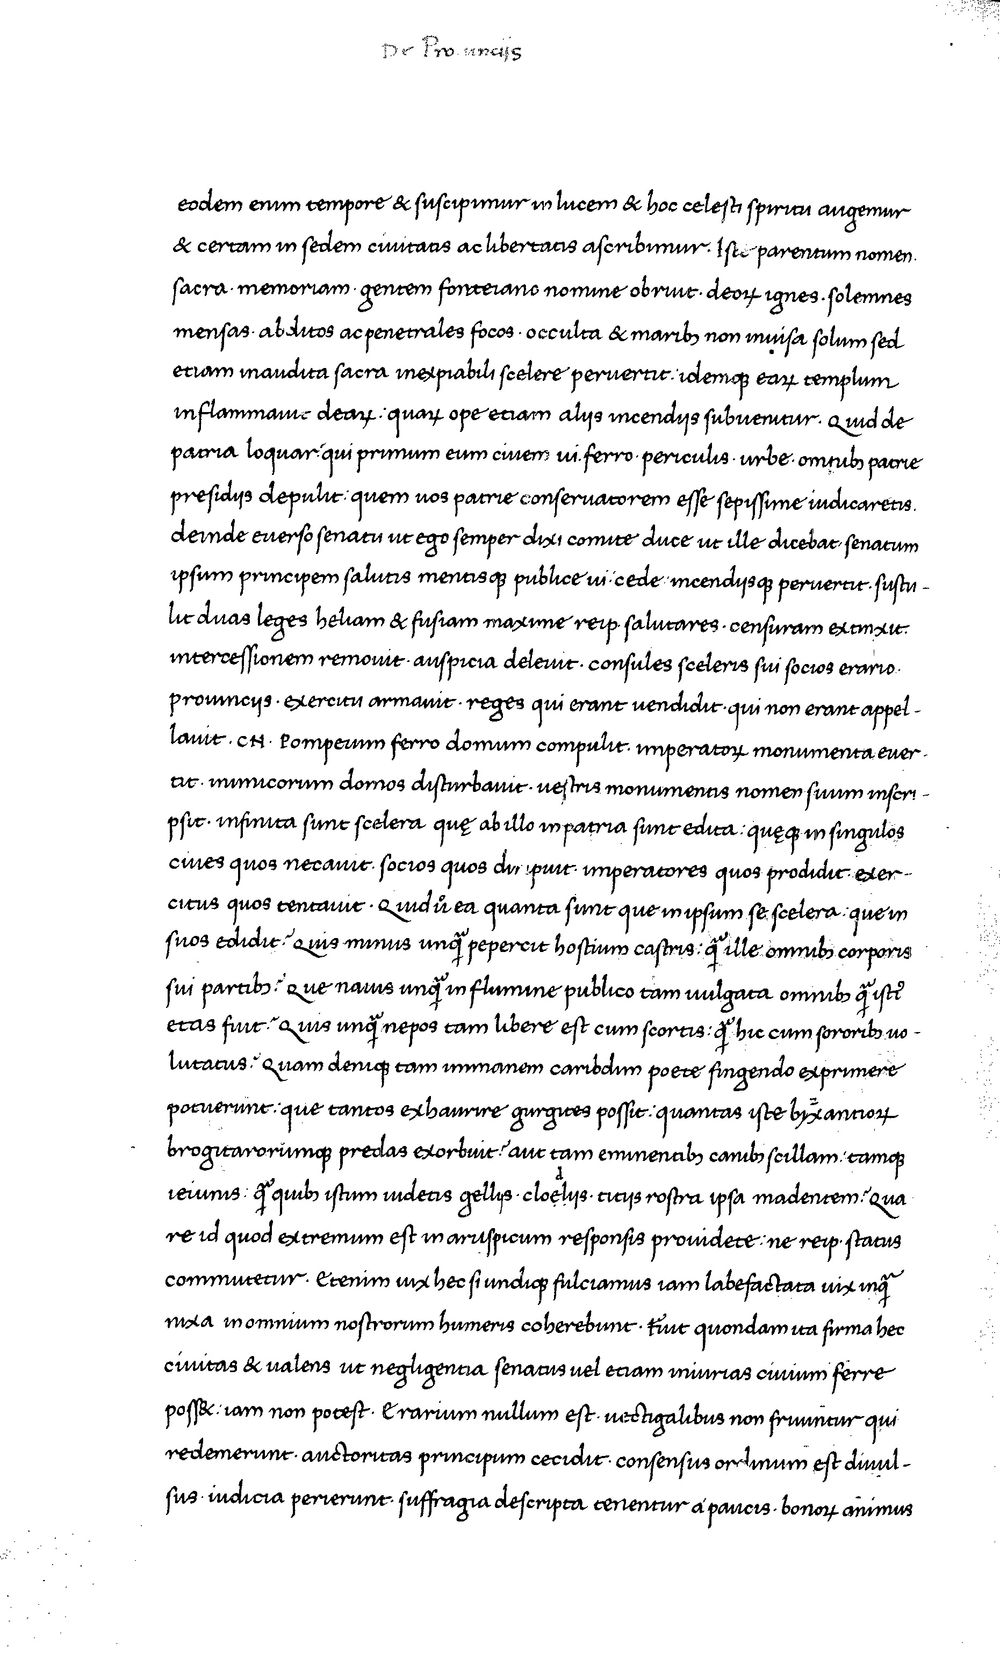 De Prouincijs
eodem enim tempore & suscipimur in lucem & hoc celesti spiritu augemur
& certam in sedem ciuitatis ac libertatis ascribimur. Iste parentum nomen.
sacra. memoriam. gentem fonteiano nomine obruit. deoꝝ ignes. solemnes
mensas. abditos ac penetrales focos. occulta & maribꝫ non inuisa solum sed
etiam inaudita sacra inexpiabili scelere peruertit: idemqꝫ eaꝝ templum
inflammauit deaꝝ: quaꝝ ope etiam alijs incendijs subuenitur. Quid de
patria loquar? qui primum eum ciuem ui. ferro. periculis. urbe. omnibꝫ patrie
presidijs depulit: quem uos patrie conseruatorem esse sepissime iudicaretis.
deinde euerso senatu ut ego semper dixi comite duce ut ille dicebat. senatum
ipsum principem salutis mentisqꝫ publice ui: cede: incendijsqꝫ peruertit. sustu-
lit duas leges heliam & fusiam maxime reip. salutares. censuram extinxit.
intercessionem remouit. auspicia deleuit. consules sceleris sui socios erario.
prouincijs. exercitu armauit. reges qui erant uendidit. qui non erant appel-
lauit. CN. Pompeium ferro domum compulit. imperatoꝝ monumenta euer-
tit. inimicorum domos disturbauit. uestris monumentis nomen suum inscri-
psit. infinita sunt scelera quę ab illo in patria sunt edita: quęqꝫ in singulos
ciues quos necauit. socios quos diripuit. imperatores quos prodidit. exer-
citus quos tentauit. Quid u̇o ea quanta sunt que in ipsum se scelera: que in
suos edidit? Quis minus unq̃ꝫ pepercit hostium castris: q̃ꝫ ille omnibꝫ corporis
sui partibꝫ? Que nauis unq̃ꝫ in flumine publico tam uulgata omnibꝫ q̃ꝫ isti᷒
etas fuit? Quis unq̃ꝫ nepos tam libere est cum scortis: q̃ꝫ hic cum sororibꝫ uo-
lutatus? Quam deniqꝫ tam immanem caribdim poete fingendo exprimere
potuerunt: que tantos exhaurire gurgites possit: quantas iste byx̄antioꝝ
brogitarorumqꝫ predas exorbuit? aut tam eminentibꝫ canibꝫ scillam: tamqꝫ
ieiunis: q̃ꝫ quibꝫ istum uidetis gellijs. cloelijs. titijs rostra ipsa madentem? Qua
re id quod extremum est in aruspicum responsis prouidete: ne reip. status
commutetur. Etenim uix hec si undiqꝫ fulciamus iam labefactata uix inq̃ꝫ
nixa in omnium nostrorum humeris coherebunt. Fuit quondam ita firma hec
ciuitas & ualens ut negligentia senatus uel etiam iniurias ciuium ferre
poss&: iam non potest. Erarium nullum est. uectigalibus non fruuntur qui
redemerunt. auctoritas principum cecidit. consensus ordinum est diuul-
sus. iudicia perierunt. suffragia descripta tenentur a paucis. bonoꝝ animus